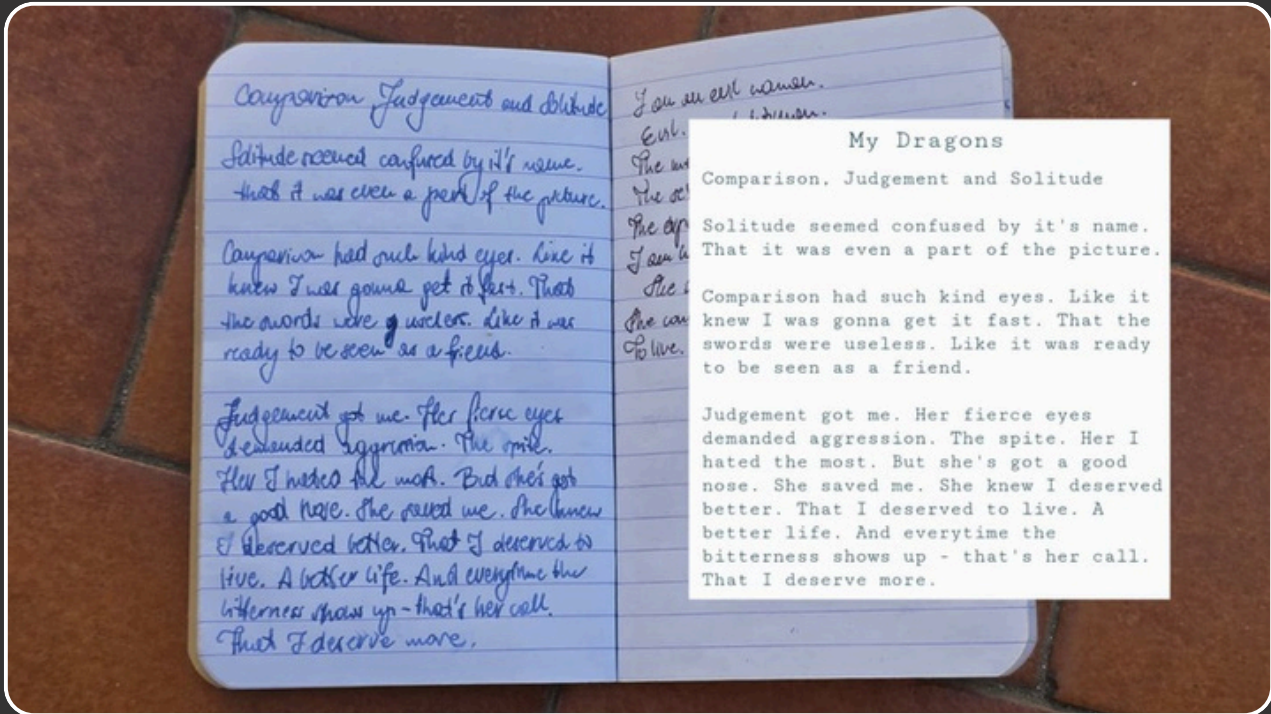 Comparison Judgement and Solitude
Solitude seemed confused by it's name.
that it was even a part of the picture.
Comparison had such kind eyes. Like it
knew I was gonna get it fast. That
the swords were useless. Like it was
ready to be seen as a friend.
Judgement got me. Her fierce eyes
demanded aggression. The spite.
Her I hated the most. But she's got
a good nose. She saved me. She knew
I deserved better. That I deserved to
live. A better life. And everytime the
bitterness shows up - that's her call.
That I deserve more.
I am an evil woman.
Evil.
The
The
The
I am
She
She
To live.
My Dragons
Comparison, Judgement and Solitude
Solitude seemed confused by it's name.
That it was even a part of the picture.
Comparison had such kind eyes. Like it
knew I was gonna get it fast. That the
swords were useless. Like it was ready
to be seen as a friend.
Judgement got me. Her fierce eyes
demanded aggression. The spite. Her I
hated the most. But she's got a good
nose. She saved me. She knew I deserved
better. That I deserved to live. A
better life. And everytime the
bitterness shows up - that's her call.
That I deserve more.